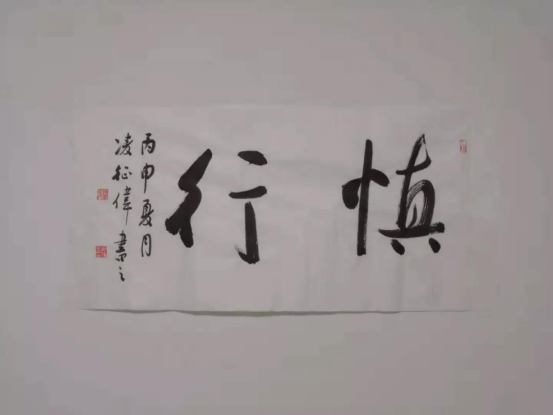 慎行
丙申夏月
凌征偉書之